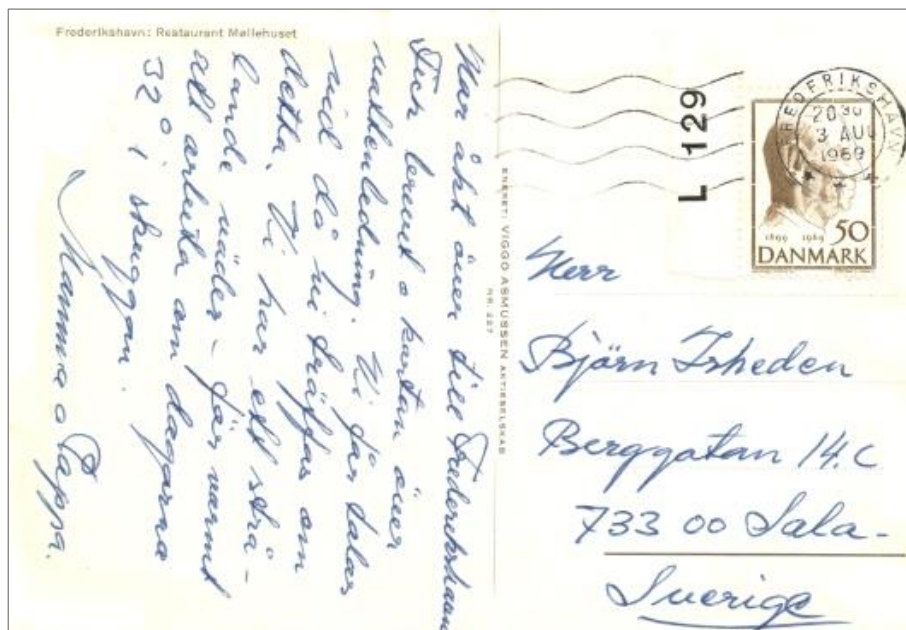 Frederikshavn: Restaurant Møllehuset
Har åkt över till Frederikshavn
Fick brevet o kartan över
vattenledning. Vi får talas
vid då vi träffas om
detta. Vi har ett strå-
lande väder – för varmt
att arbeta om dagarna
32° i skuggan.
Mamma o Pappa.
ENERET: VIGGO ASMUSSEN AKTIESELSKAB
NR. 227
L 129
FREDERIKSHAVN
20 30
3 AUG
1969
1899 1969 50
DANMARK
Herr
Björn Isheden
Berggatan 14.C
733 00 Sala-
Sverige